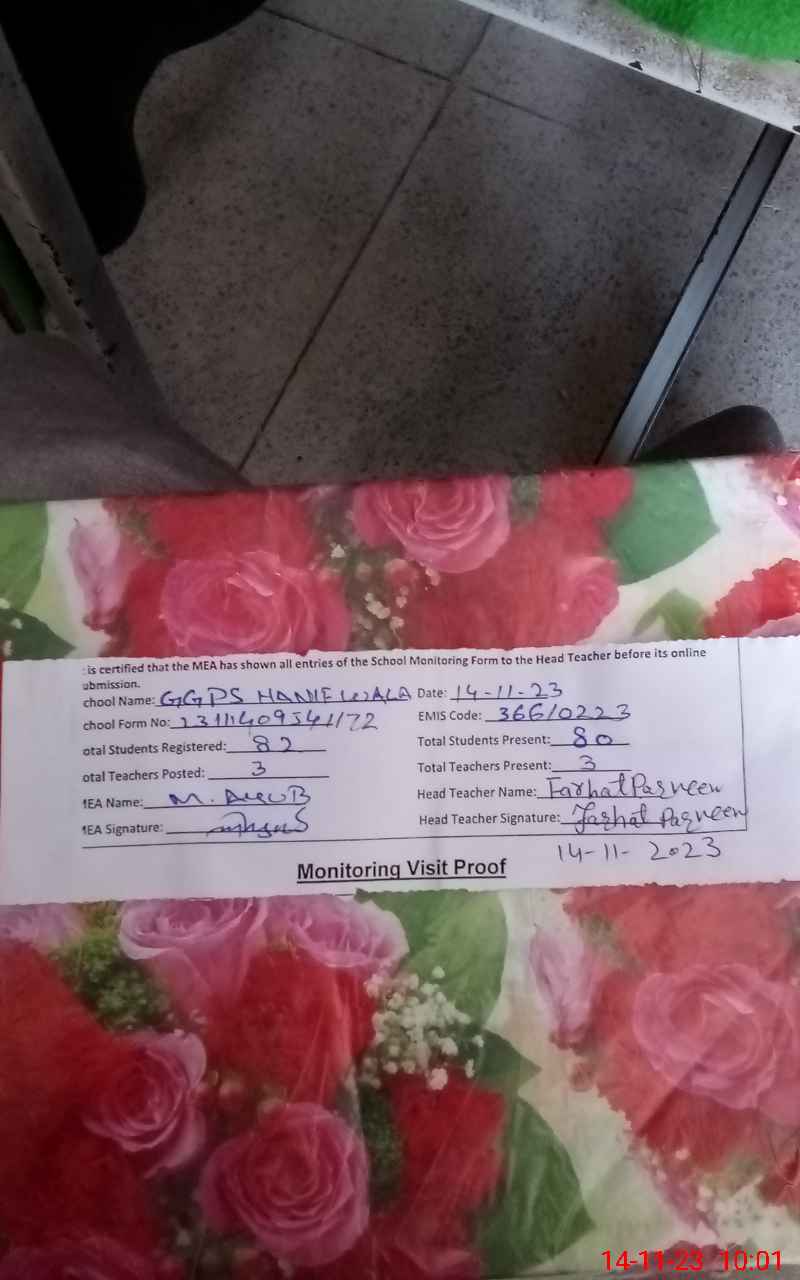 is certified that the MEA has shown all entries of the School Monitoring Form to the Head Teacher before its online
ubmission.
chool Name: GGPS HANIF WALA Date: 14-11-23
chool Form No: EMIS Code: 36610223
otal Students Registered: 82 Total Students Present: 80
otal Teachers Posted: 3 Total Teachers Present: 3
MEA Name: M. AYUB Head Teacher Name: Farhat Parveen
MEA Signature: Head Teacher Signature: Farhat Parveen
14-11-2023
Monitoring Visit Proof
14-11-23 10:01